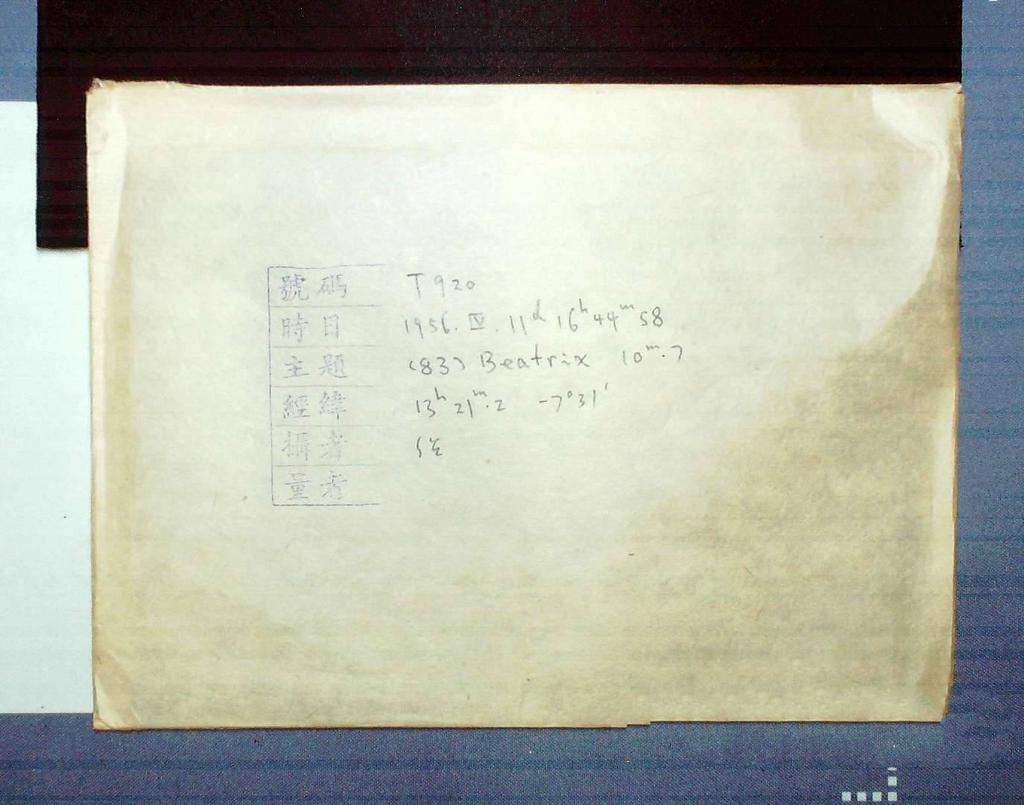 號碼 T920
時目 1956. IV. 11ᵈ 16ʰ 44ᵐ 58
主題 (83) Beatrix 10ᵐ.7
經緯 13ʰ 21ᵐ.2 -7°31'
攝者
量者